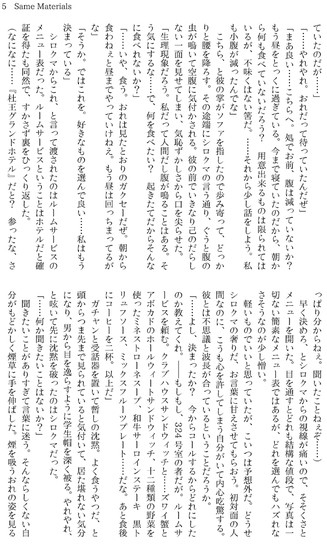 5 Same Materials
ていたのだが……」
「……やれやれ。おれだって待っていたんだぜ」
「まあ良い……こちらへ。処でお前、腹は減っていないか?
もう昼をとっくに過ぎている。今まで寝ていたのだから、朝か
ら何も食べていないだろう? 用意出来るものは限られては
いるが、不味くはない筈だ。……それから少し話をしよう。私
も小腹が減ったんでな」
こちら、と彼の掌がソファを指したので歩み寄って、どっか
りと腰を降ろす。その途端にシロクマの言う通り、ぐうと腹の
虫が鳴いて空腹に気付かされる。彼の前でいきなり己のだらし
ない一面を見せてしまい、気恥ずかしさから口を尖らせた。
「生理現象だろう。私だって人間だし腹が鳴ることはある。そ
う気にするな……で、何を食べたい? 起きたてだからそんな
に食べれないか?」
「……いや、食う。おれは見たとおりのガクセーだぜ。朝から
食わねえと昼までやっていけねえ。もう昼は回っちまってるが
な」
「そうか。ではこれを。好きなものを選んで良い……私はもう
決まっている」
シロクマからこれ、と言って渡されたのはルームサービスの
メニュー表だった。ルームサービスということはホテルだと確
証を得たも同然で、すかさず裏をひっくり返した。
(なになに……『杜王グランドホテル』だと? 参ったな、さ
っぱり分からねえ。聞いたことねえぞ……)
早く決めろ、とシロクマからの視線が痛いので、そそくさと
メニューを開いた。目を通すとどれも結構な値段で、写真は一
切ない簡素なメニュー表ではあるが、どれを選んでもハズれな
さそうなのが少し憎い。
軽いものでいいと思っていたが、こいつは予想外だ。どうせ
シロクマの奢りだ、お言葉に甘えさせてもらおう。初対面の人
間に、こうも心を許してしまう自分がいて内心吃驚する。
彼とは不思議と波長が合っているということだろうか。
「……よし、決まったか? 今からコールするからどれにした
のか教えてくれ。……もしもし、324号室の者だが。ルームサ
ービスを頼む。クラブハウスサンドウィッチと……ズワイ蟹と
アボカドのホールウィートサンドウィッチ、十二種類の野菜を
使ったミネストローネスープ、和牛サーロインステーキ 黒ト
リュフソース、ミックスフルーツプレート……だな。あと食後
にコーヒーを二杯。以上だ」
ガチャンと受話器を置いて暫しの沈黙。よく食うやつだ、と
頭からつま先まで見られていると気付いて、居た堪れない気分
になり、男から目を逸らすように学生帽を深く被る。やれやれ、
と呟いて先に沈黙を破ったのはシロクマだった。
「……何か聞きたいことはないか?」
聞きたいことがありすぎて言葉に迷う。そんならしくない自
分がもどかしく煙草に手を伸ばした。煙を吸うおれの姿を見る